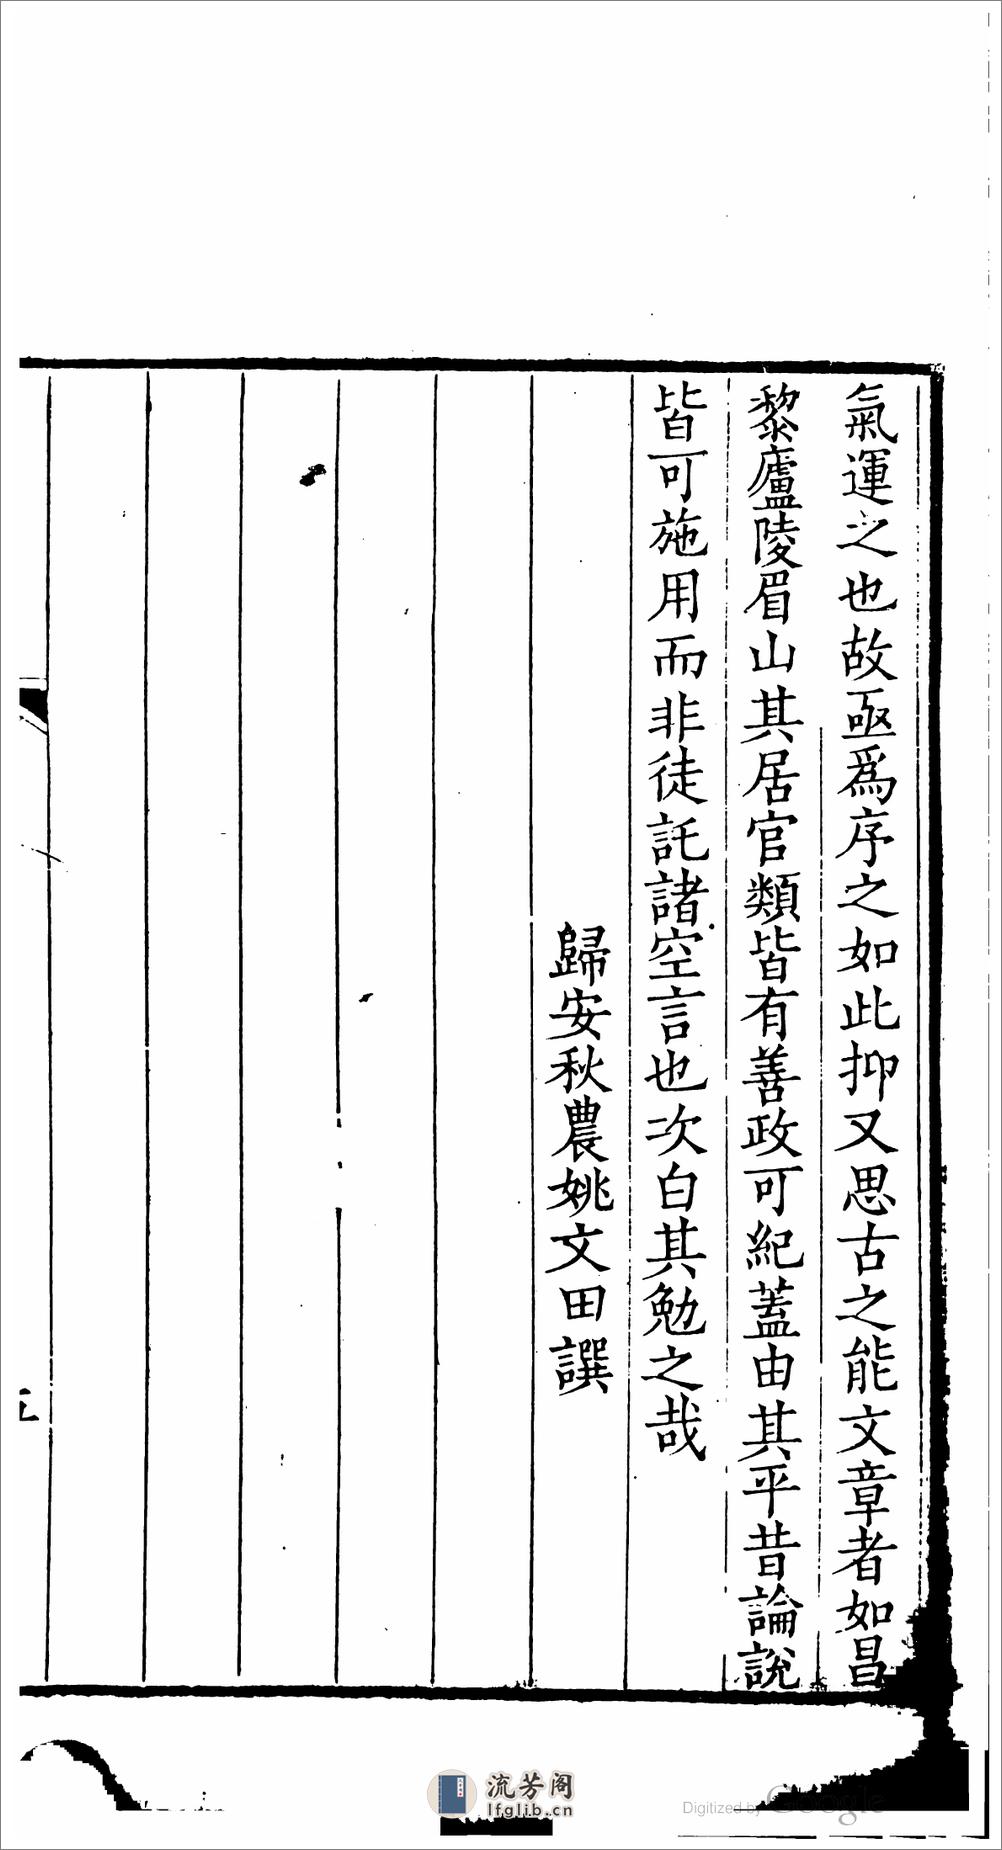 氣運之也故亟爲序之如此抑又思古之能文章者如昌
黎廬陵眉山其居官類皆有善政可紀蓋由其平昔論說
皆可施用而非徒託諸空言也次白其勉之哉
歸安秋農姚文田譔
流芳阁
lfglib.cn
Digitized by Google